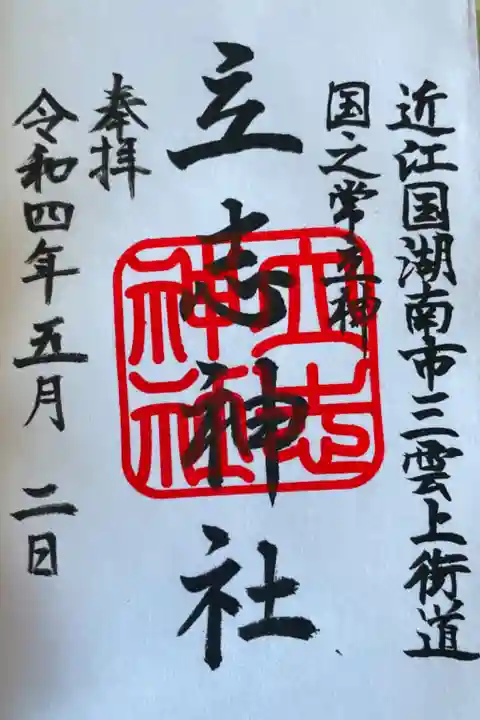 近江国湖南市三雲上街道
国之常立神
立志神社
立志神社
奉拝
令和四年五月 二日